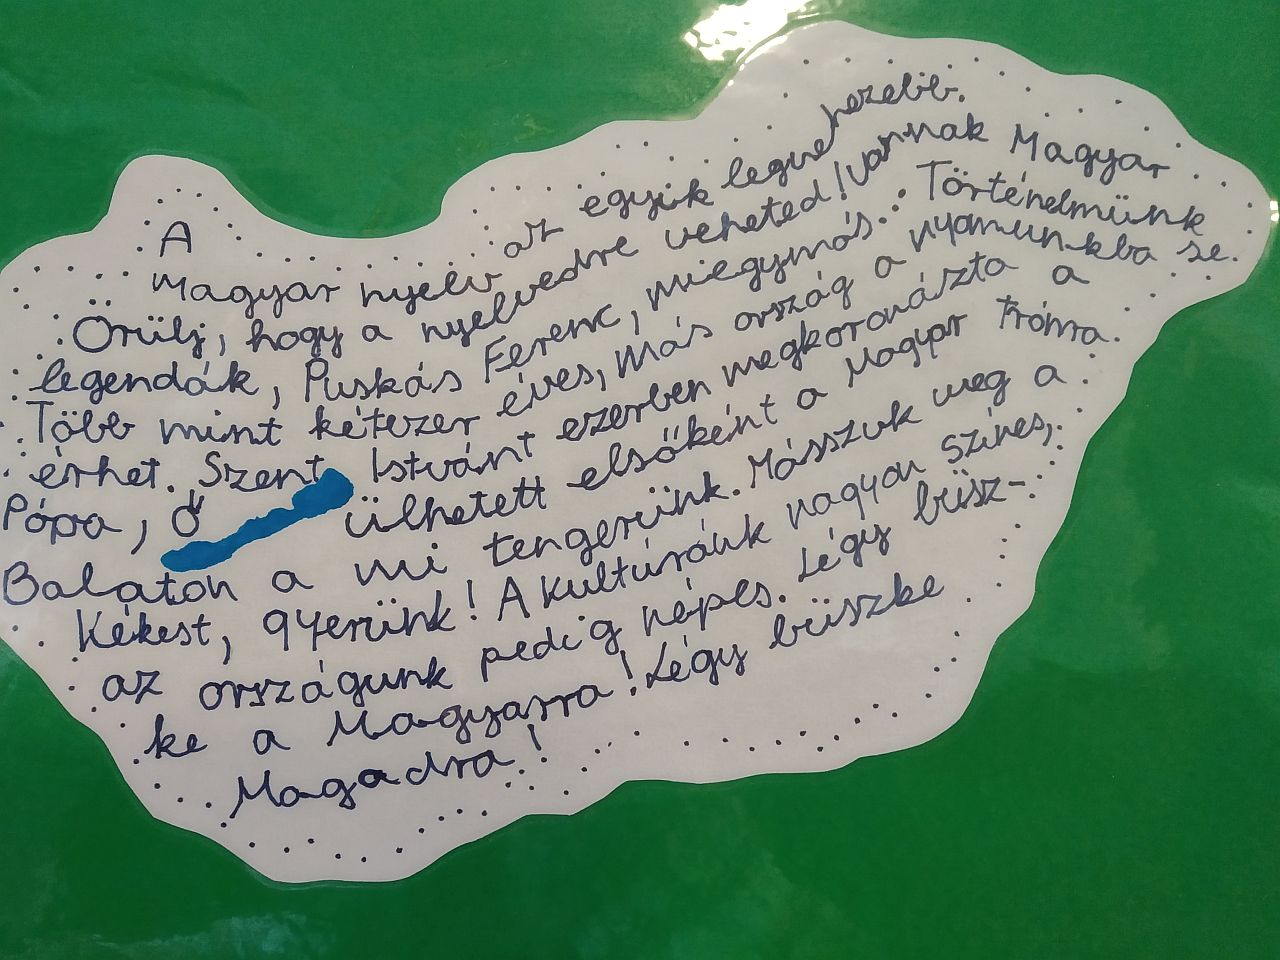 A
Magyar nyelv az egyik legnehezebb.
Örülj, hogy a nyelvedre veheted! Vannak Magyar
legendák, Puskás Ferenc, miegymás... Történelmünk
Több mint kétezer éves, más ország a nyomunkba se.
érhet. Szent Istvánt ezerben megkoronázta a
Pápa, ő ülhetett elsőként a Magyar trónra.
Balaton a mi tengerünk. Másszuk meg a
Kékest, gyerünk! A kultúránk nagyon színes,
az országunk pedig népes. Légy büsz-
ke a Magyarra! Légy büszke
Magadra!